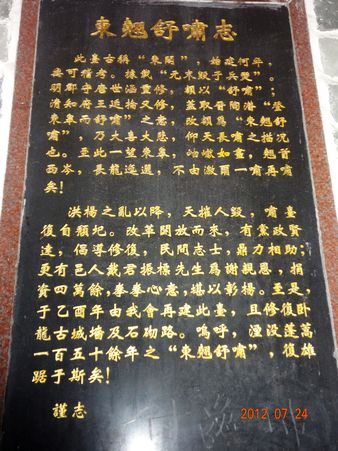 東翹舒嘯志
此臺古稱“東閣”，始建何年，
無可稽考。據載“元末毀于兵燹”。
明鄭守唐世涵重修，顏以“舒嘯”；
清知府王廷掄又修，蓋取晉陶潛“登
東皋而舒嘯”之意，改額爲“東翹舒
嘯”，乃大喜大悲，仰天長嘯之指况
也。至此一望東皋，岫嶸如畫，翹首
西岑，長龍迤邐，不由激爾一嘯再嘯
矣！
洪楊之亂以降，天摧人毀，嘯臺
復自頹圮。改革開放而來，有黨政賢
達，倡導修復，民間志士，鼎力相助；
更有邑人戴君振樑先生爲謝親恩，捐
資四萬餘，拳拳心意，堪以彰楊。至是，
于乙酉年由我會再建此臺，且修復卧
龍古城墙及石砌路。嗚呼，湮没蓬蒿
一百五十餘年之“東翹舒嘯”，復雄
踞于斯矣！
謹志
2012 07 24